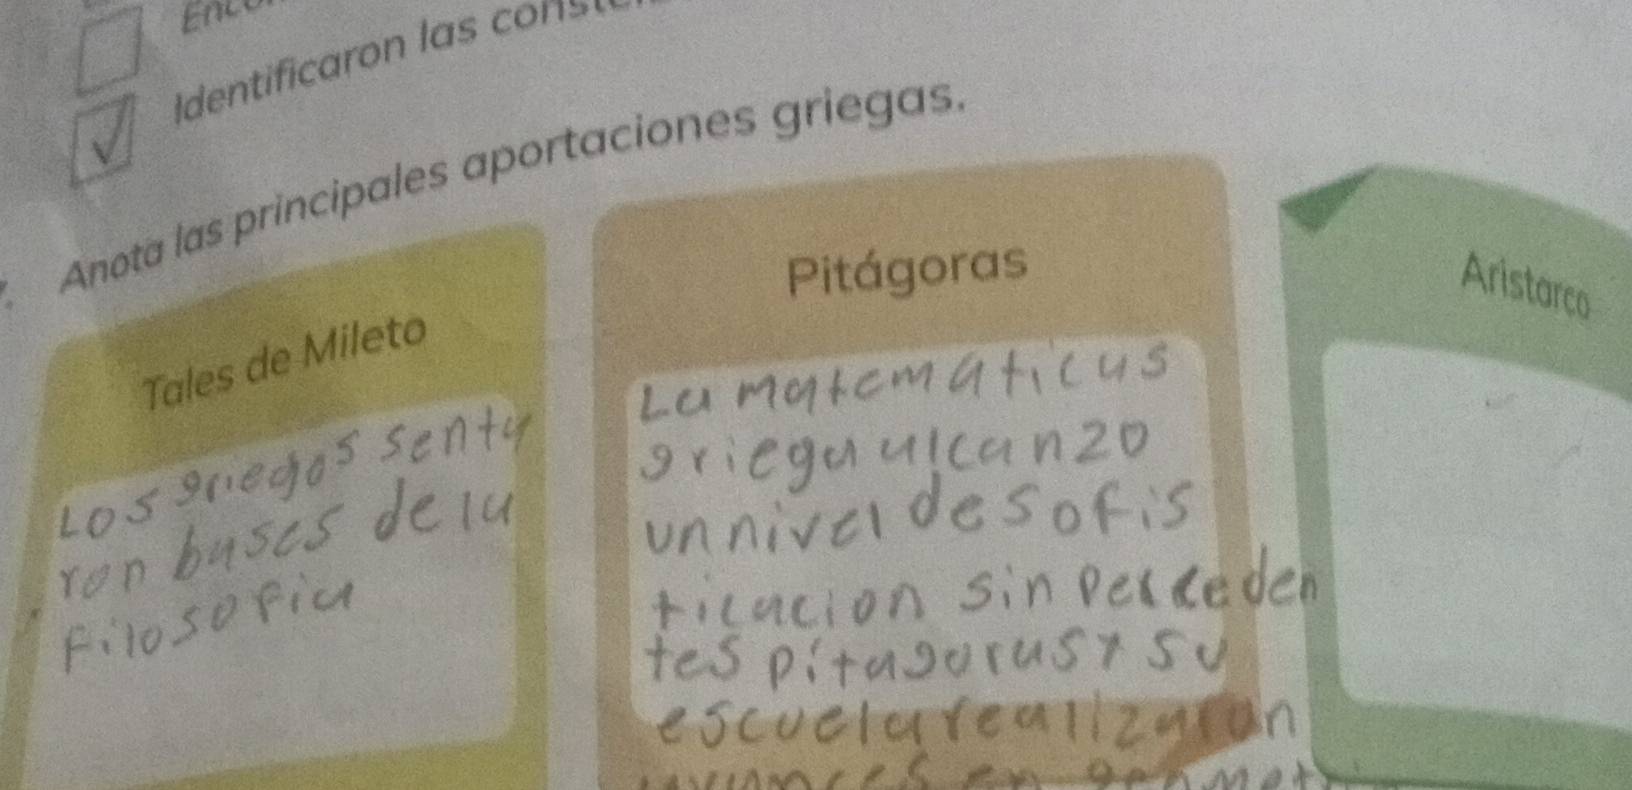 Identificaron las
Anota las principales aportaciones griegas.
Tales de Mileto
Los griegos senta
ron bases de la
Filosofia
Pitágoras
La matematicas
griega alcanzo
un nivel de sofis
ticacion sin perceden
tes pitagoras y su
escuela realizaron
en
Aristarco